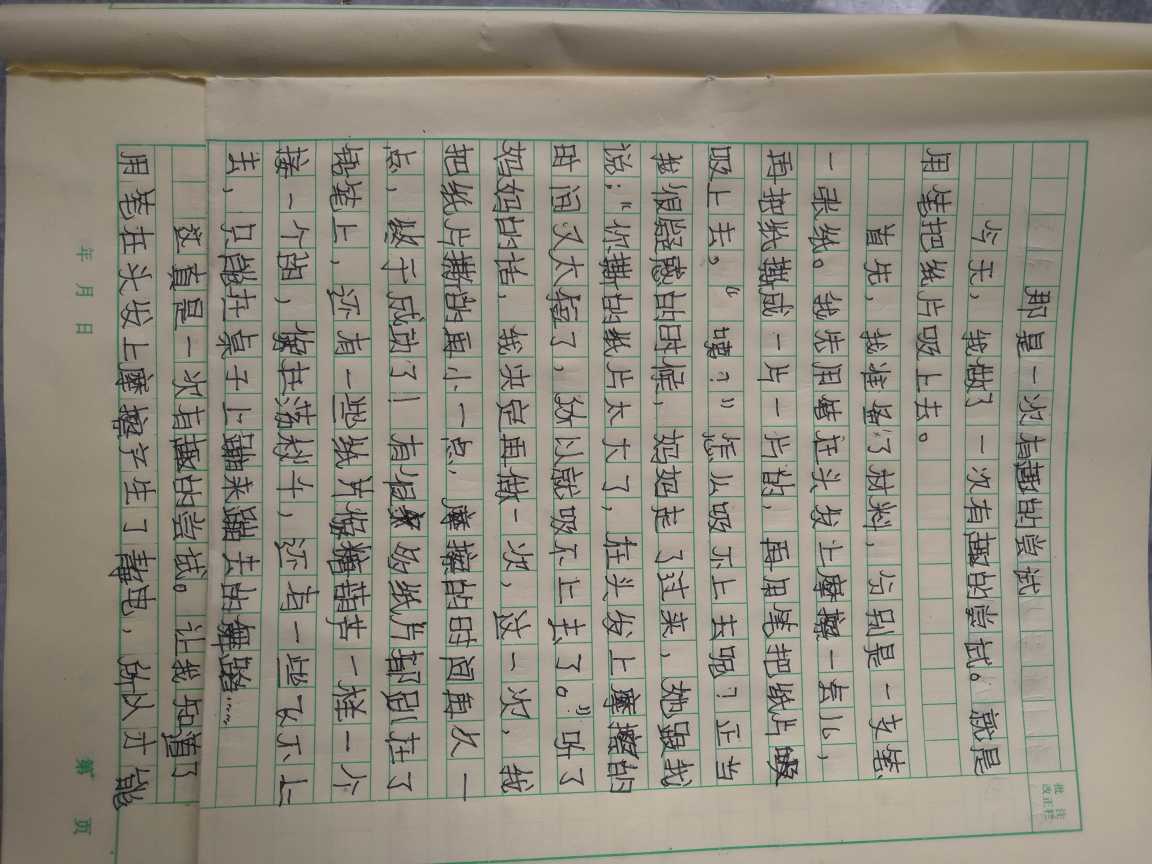 那是一次有趣的尝试
今天，我做了一次有趣的尝试。就是
用笔把纸片吸上去。
首先，我准备了材料，分别是一支笔
一张纸。我先用笔在头发上摩擦一会儿，
再把纸撕成一片一片的，再用笔把纸片
吸上去。“噫？”怎么吸不上去呢？正当
我很疑惑的时候，妈妈走了过来，她跟我
说：“你撕的纸片太大了，在头发上摩擦的
时间又太短了，所以就吸不上去了。”听了
妈妈的话，我决定再做一次，这一次，我
把纸片撕的再小一点，摩擦的时间再久一
点，终于成功了！有很多纸片都趴在了
铅笔上，还有一些纸片像糖葫芦一样一个
接一个的，像在荡秋千，还有一些飞不上
去，只能在桌子上蹦来蹦去的舞蹈……
这真是一次有趣的尝试。让我知道了
用笔在头发上摩擦产生了静电，所以才能
批注
改正栏
年 月 日
第 页